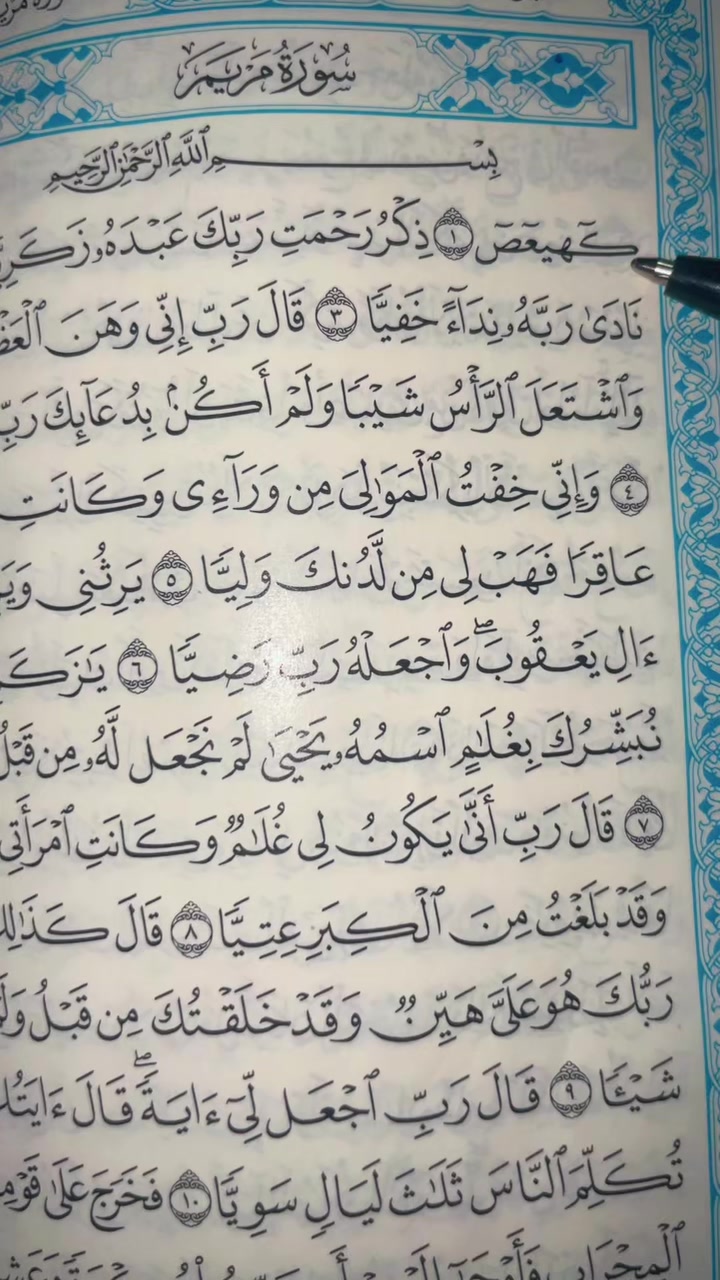 سُورَةُ مَرْيَمَ
بِسْمِ ٱللَّهِ ٱلرَّحْمَٰنِ ٱلرَّحِيمِ
كٓهيعٓصٓ ١ ذِكْرُ رَحْمَتِ رَبِّكَ عَبْدَهُۥ
نَادَىٰ رَبَّهُۥ نِدَآءً خَفِيًّا ٣ قَالَ رَبِّ إِنِّى وَهَنَ
وَٱشْتَعَلَ ٱلرَّأْسُ شَيْبًا وَلَمْ أَكُنۢ بِدُعَآئِكَ رَبِّ
٤ وَإِنِّى خِفْتُ ٱلْمَوَٰلِىَ مِن وَرَآءِى وَكَانَتِ
عَاقِرًا فَهَبْ لِى مِن لَّدُنكَ وَلِيًّا ٥ يَرِثُنِى
ءَالِ يَعْقُوبَ ۖ وَٱجْعَلْهُ رَبِّ رَضِيًّا ٦
نُبَشِّرُكَ بِغُلَٰمٍ ٱسْمُهُۥ يَحْيَىٰ لَمْ نَجْعَل لَّهُۥ مِن قَبْلُ
٧ قَالَ رَبِّ أَنَّىٰ يَكُونُ لِى غُلَٰمٌ وَكَانَتِ ٱمْرَأَتِى
وَقَدْ بَلَغْتُ مِنَ ٱلْكِبَرِ عِتِيًّا ٨ قَالَ
رَبُّكَ هُوَ عَلَىَّ هَيِّنٌ وَقَدْ خَلَقْتُكَ مِن قَبْلُ
شَيْـًٔا ٩ قَالَ رَبِّ ٱجْعَل لِّىٓ ءَايَةً ۚ قَالَ
تُكَلِّمَ ٱلنَّاسَ ثَلَٰثَ لَيَالٍ سَوِيًّا ١٠ فَخَرَجَ عَلَىٰ